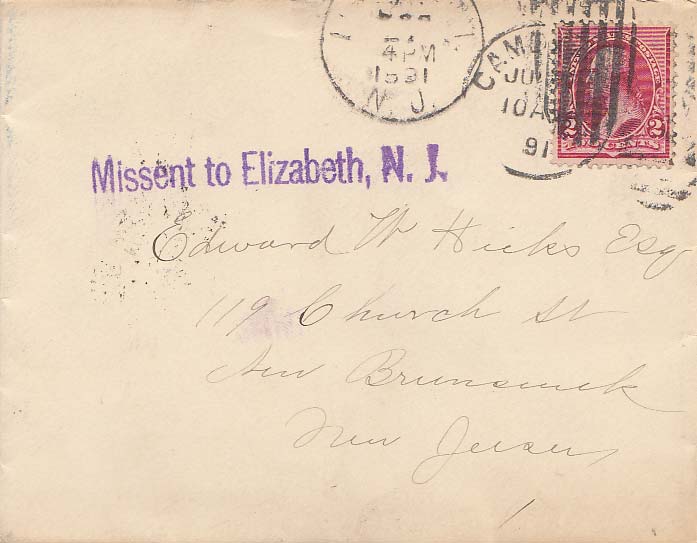 4PM
1891
N. J.
CAM
JU
10A
91
2 2
Missent to Elizabeth, N. J.
Edward W Hicks Esq
119 Church St
New Brunswick
New Jersey